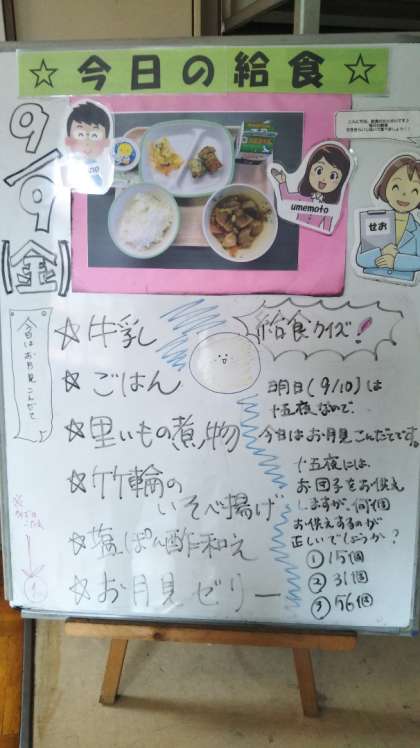 ☆今日の給食☆
9/9(金)
no
umemoto
せお
今日はお月見こんだて
☆牛乳
☆ごはん
☆里いもの煮物
☆竹輪の
いそべ揚げ
☆塩ぽん酢和え
☆お月見ゼリー
給食クイズ!
明日(9/10)は
十五夜なので、
今日はお月見こんだてです。
十五夜には、
お団子をお供え
しますが、何個
お供えするのが
正しいでしょうか?
①15個
②31個
③56個